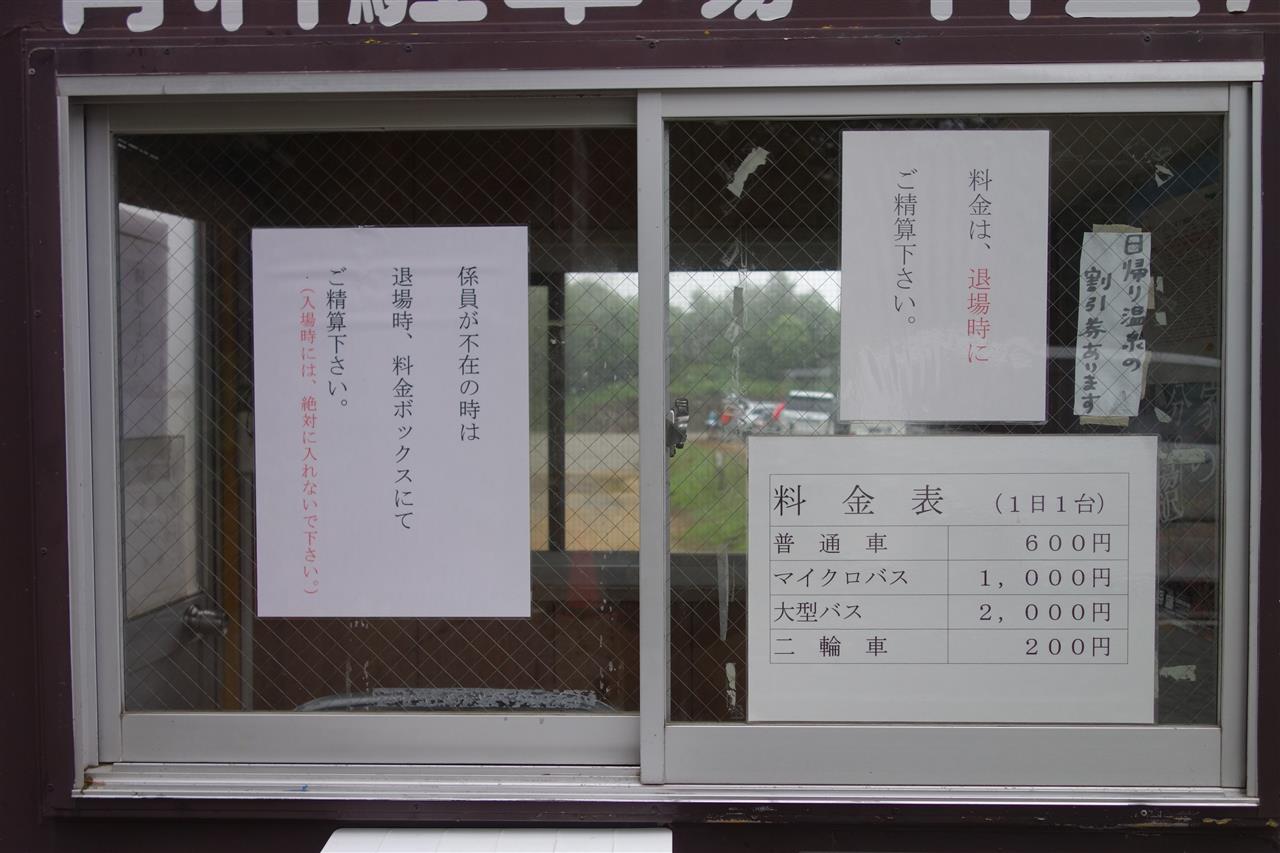 有料駐車場 料金所
係員が不在の時は
退場時、料金ボックスにて
ご精算下さい。
(入場時には、絶対に入れないで下さい。)
料金は、退場時に
ご精算下さい。
日帰り温泉の
割引券あります
料金表 (1日1台)
普通車 600円
マイクロバス 1,000円
大型バス 2,000円
二輪車 200円